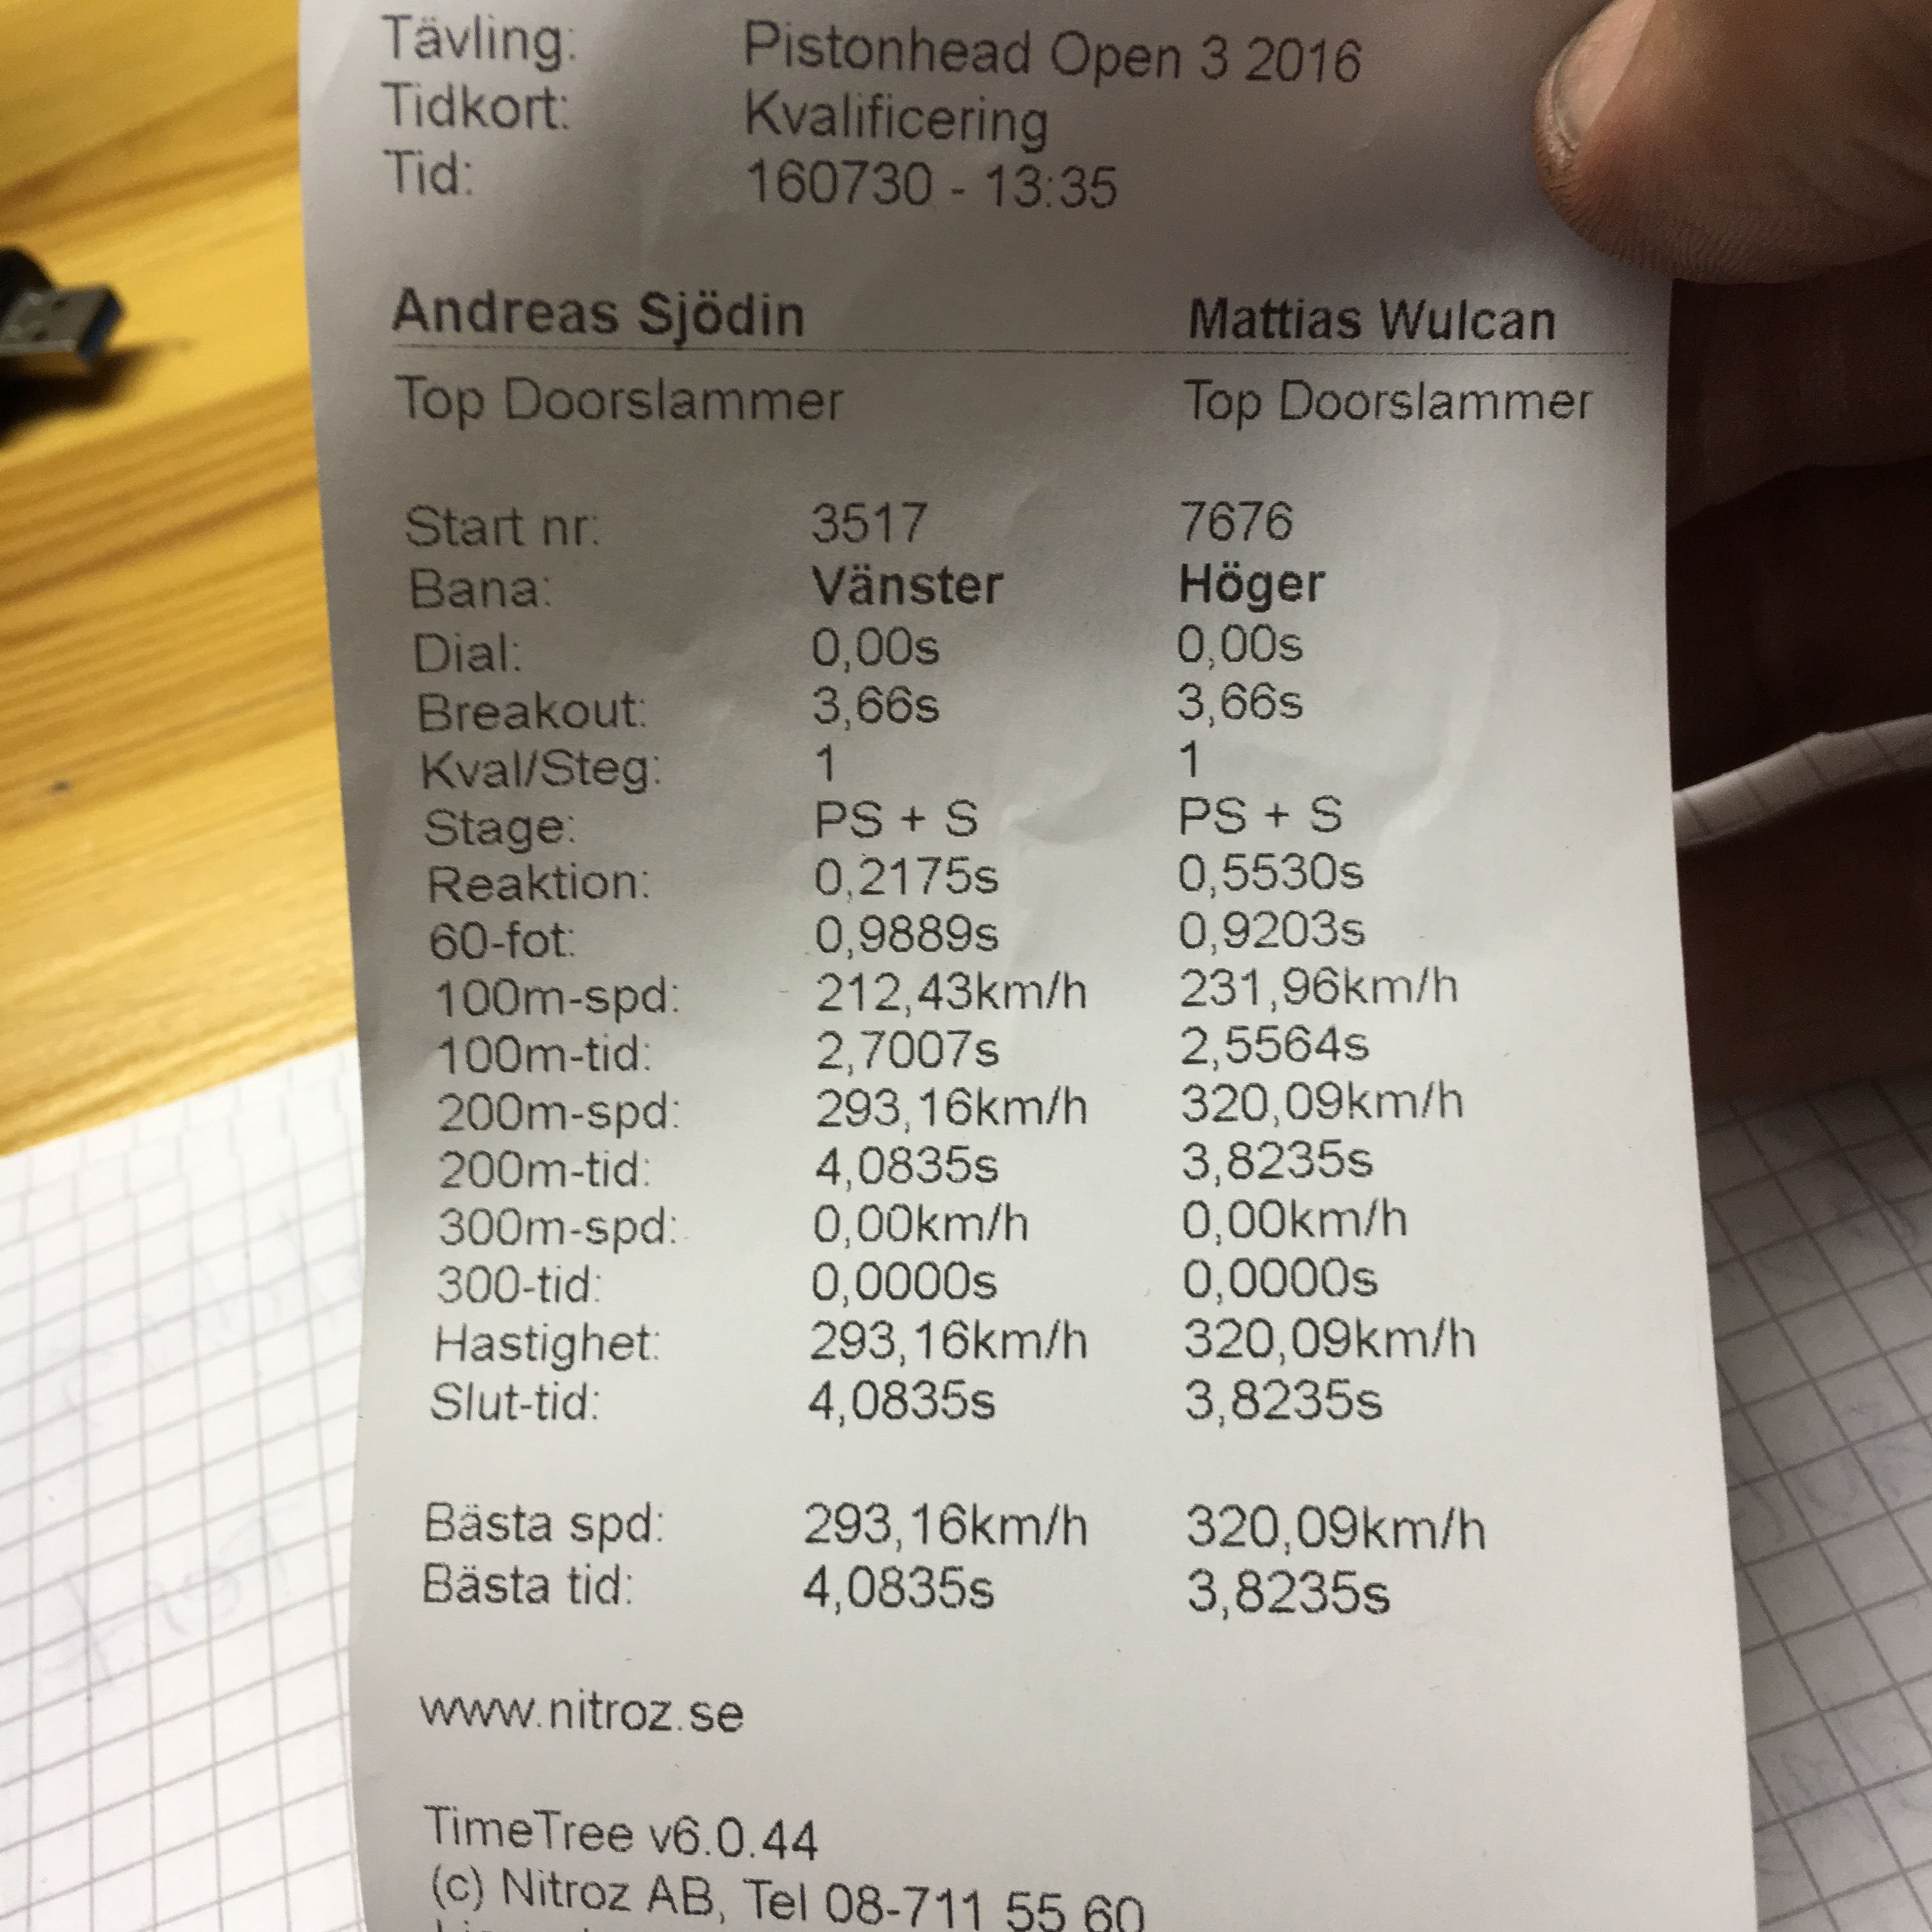 Tävling: Pistonhead Open 3 2016
Tidkort: Kvalificering
Tid: 160730 - 13:35
Andreas Sjödin Mattias Wulcan
Top Doorslammer Top Doorslammer
Start nr: 3517 7676
Bana: Vänster Höger
Dial: 0,00s 0,00s
Breakout: 3,66s 3,66s
Kval/Steg: 1 1
Stage: PS + S PS + S
Reaktion: 0,2175s 0,5530s
60-fot: 0,9889s 0,9203s
100m-spd: 212,43km/h 231,96km/h
100m-tid: 2,7007s 2,5564s
200m-spd: 293,16km/h 320,09km/h
200m-tid: 4,0835s 3,8235s
300m-spd: 0,00km/h 0,00km/h
300-tid: 0,0000s 0,0000s
Hastighet: 293,16km/h 320,09km/h
Slut-tid: 4,0835s 3,8235s
Bästa spd: 293,16km/h 320,09km/h
Bästa tid: 4,0835s 3,8235s
www.nitroz.se
TimeTree v6.0.44
(c) Nitroz AB, Tel 08-711 55 60